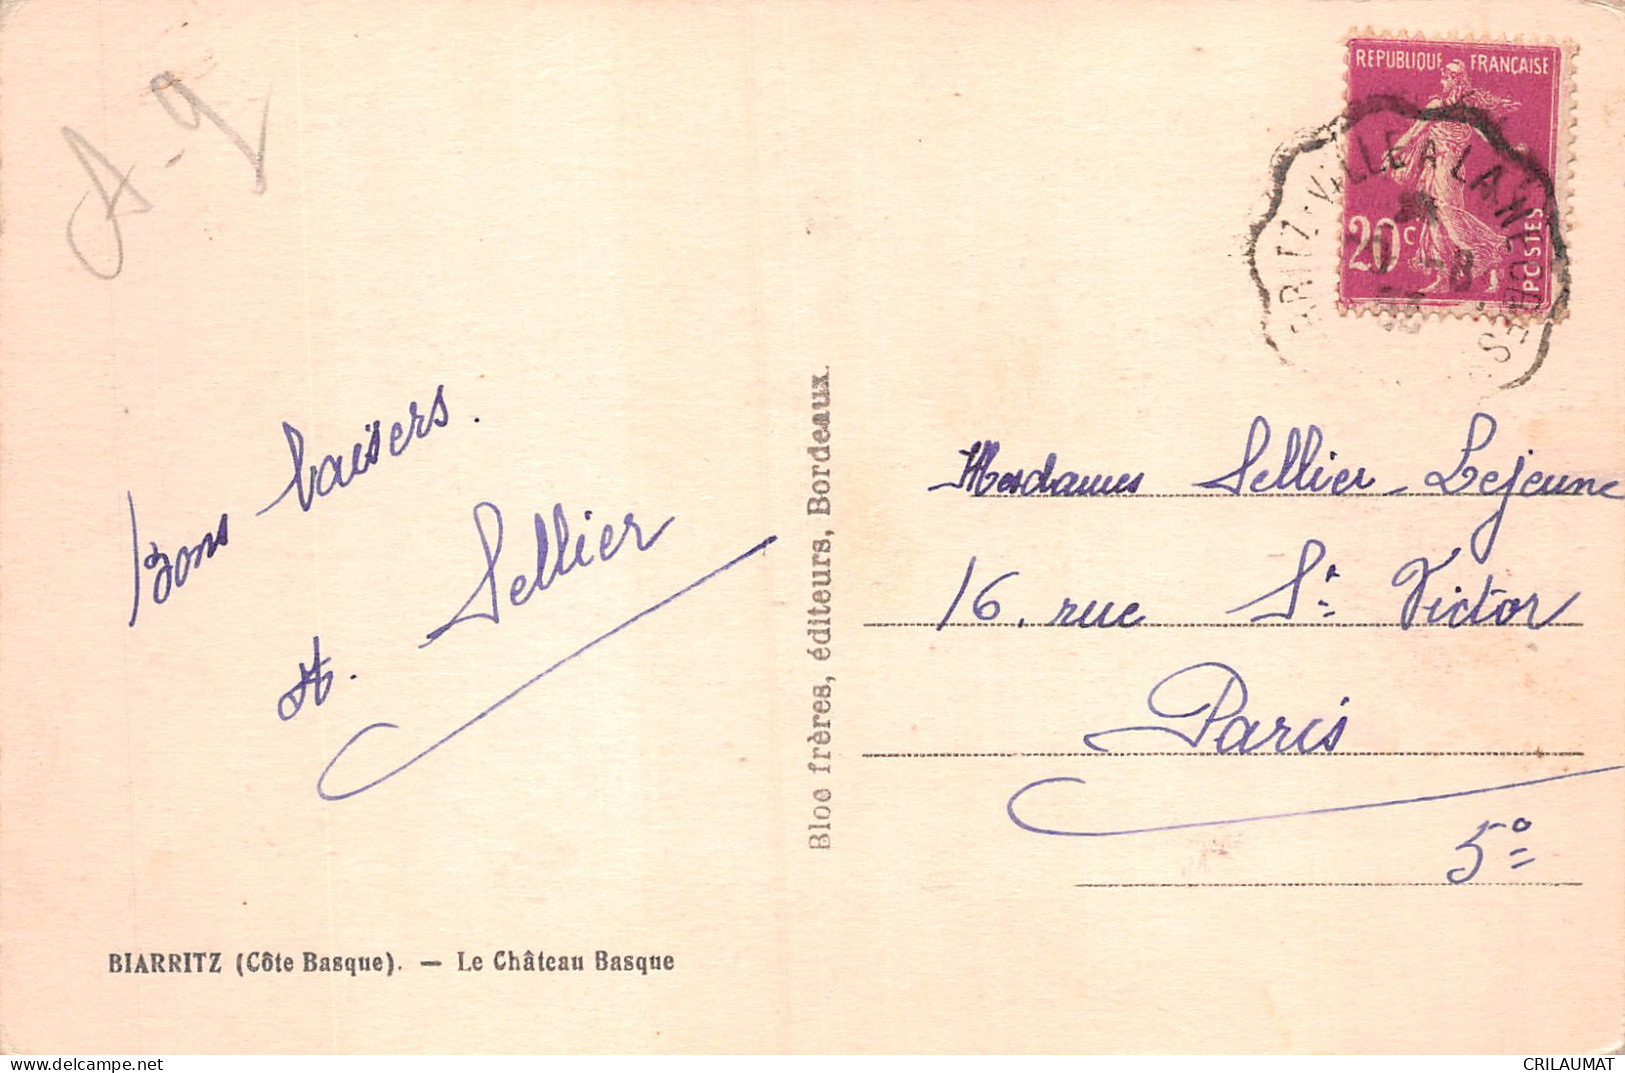 A-9
REPUBLIQUE FRANÇAISE
20c
POSTES
VILLE A LA NEGRESSE
-8
Bons baisers.
A. Sellier
Bloc frères, éditeurs, Bordeaux.
Mesdames Sellier-Lejeune
16, rue St Victor
Paris
5e
BIARRITZ (Côte Basque). — Le Château Basque
delcampe.net
CRILAUMAT